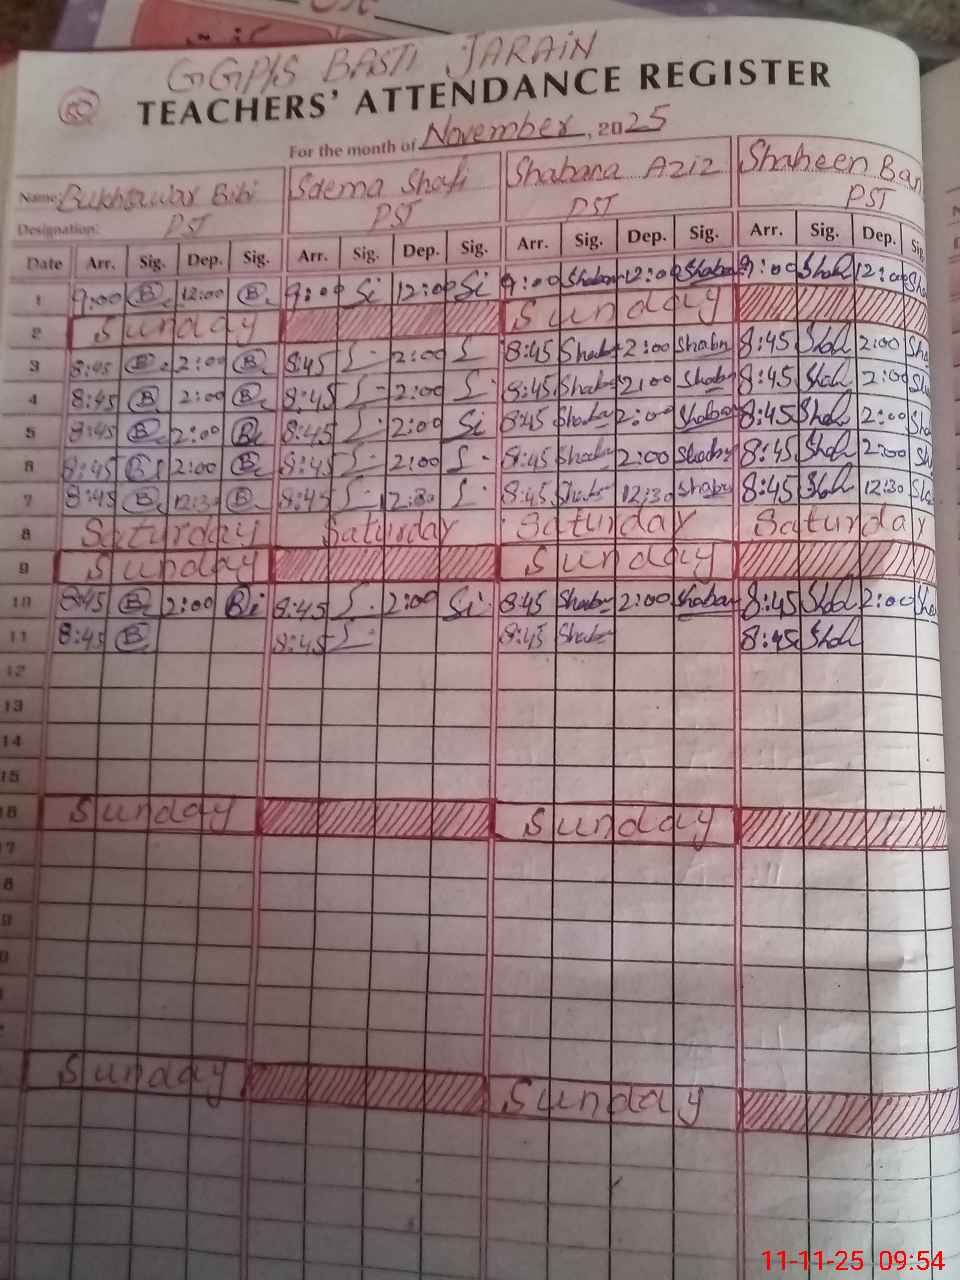 GGP/S BASTI JARAIN
TEACHERS' ATTENDANCE REGISTER
For the month of November, 2025
Name: Bukhtawar Bibi Saema Shafi Shabana Aziz Shaheen Ban
Designation: PST PST PST PST
Date Arr. Sig. Dep. Sig. Arr. Sig. Dep. Sig. Arr. Sig. Dep. Sig. Arr. Sig. Dep. Sig
1 9:00 B 12:00 B 9:00 Si 12:00 Si 9:00 Shaban 12:00 Shaban 9:00 Shah 12:00 Sha
2 Sunday Sunday
3 8:45 B 2:00 B 8:45 2:00 8:45 Shabn 2:00 Shabn 8:45 Shah 2:00 Sha
4 8:45 B 2:00 B 8:45 2:00 8:45 Shaba 2:00 Shabn 8:45 Shah 2:00 Sha
5 8:45 B 2:00 B 8:45 2:00 Si 8:45 Shaba 2:00 Shaban 8:45 Shah 2:00 Sha
6 8:45 B 2:00 B 8:45 2:00 8:45 Shaba 2:00 Shaban 8:45 Shah 2:00 Sh
7 8:45 B 12:30 B 8:45 12:30 8:45 Shabn 12:30 Shabn 8:45 Shah 12:30 Sha
8 Saturday Saturday Saturday Saturday
9 Sunday Sunday
10 8:45 B 2:00 Bi 8:45 2:00 Si 8:45 Shabn 2:00 Shaban 8:45 Shah 2:00 Sha
11 8:45 B 8:45 8:45 Shabn 8:45 Shah
12
13
14
15
16 Sunday Sunday
7
8
9
0
Sunday Sunday
11-11-25 09:54